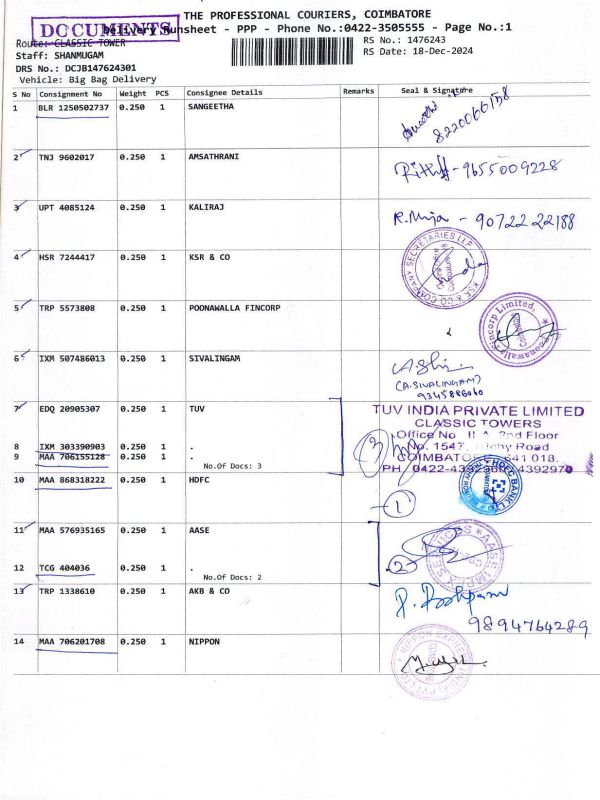 THE PROFESSIONAL COURIERS, COIMBATORE
DOCUMENTS
Delivery Runsheet - PPP - Phone No.:0422-3505555 - Page No.:1
Route: CLASSIC TOWER
RS No.: 1476243
Staff: SHANMUGAM
RS Date: 18-Dec-2024
DRS No.: DCJB147624301
Vehicle: Big Bag Delivery
S No Consignment No Weight PCS Consignee Details Remarks Seal & Signature
1 BLR 1250502737 0.250 1 SANGEETHA
8220066158
2 TNJ 9602017 0.250 1 AMSATHRANI
9655009228
3 UPT 4085124 0.250 1 KALIRAJ
90722 22188
4 HSR 7244417 0.250 1 KSR & CO
KSR & CO COMPANY SECRETARIES LLP
5 TRP 5573808 0.250 1 POONAWALLA FINCORP
Poonawalla Fincorp Limited.
6 IXM 507486013 0.250 1 SIVALINGAM
(A.SIVALINGAM)
9345886060
7 EDQ 20905307 0.250 1 TUV
TUV INDIA PRIVATE LIMITED
CLASSIC TOWERS
2nd Floor
8 IXM 303390903 0.250 1 .
No. 1547, Road
9 MAA 706155128 0.250 1 .
COIMBATORE 641 018.
No.Of Docs: 3
3
10 MAA 868318222 0.250 1 HDFC
HDFC BANK
1
11 MAA 576935165 0.250 1 AASE
2
12 TCG 404036 0.250 1 .
No.Of Docs: 2
13 TRP 1338610 0.250 1 AKB & CO
9894764289
14 MAA 706201708 0.250 1 NIPPON
NIPPON EXPRESS